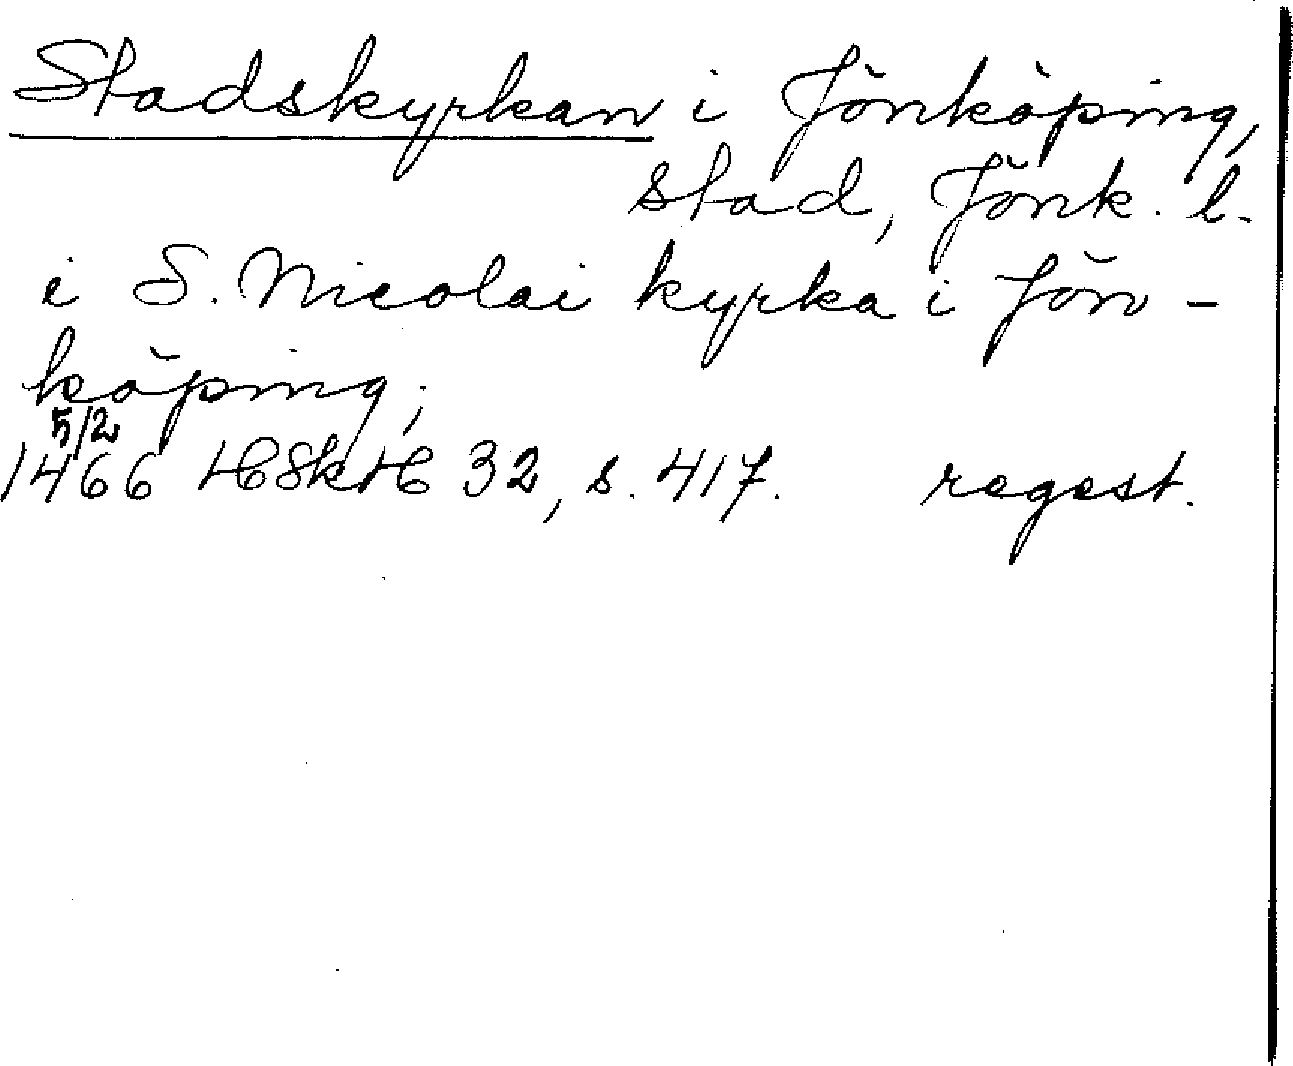 Stadskyrkan i Jönköping,
stad, Jönk. l.
i S. Nicolai kyrka i Jön-
köping;
5/2
1466 HSkH 32, s. 417. regest.